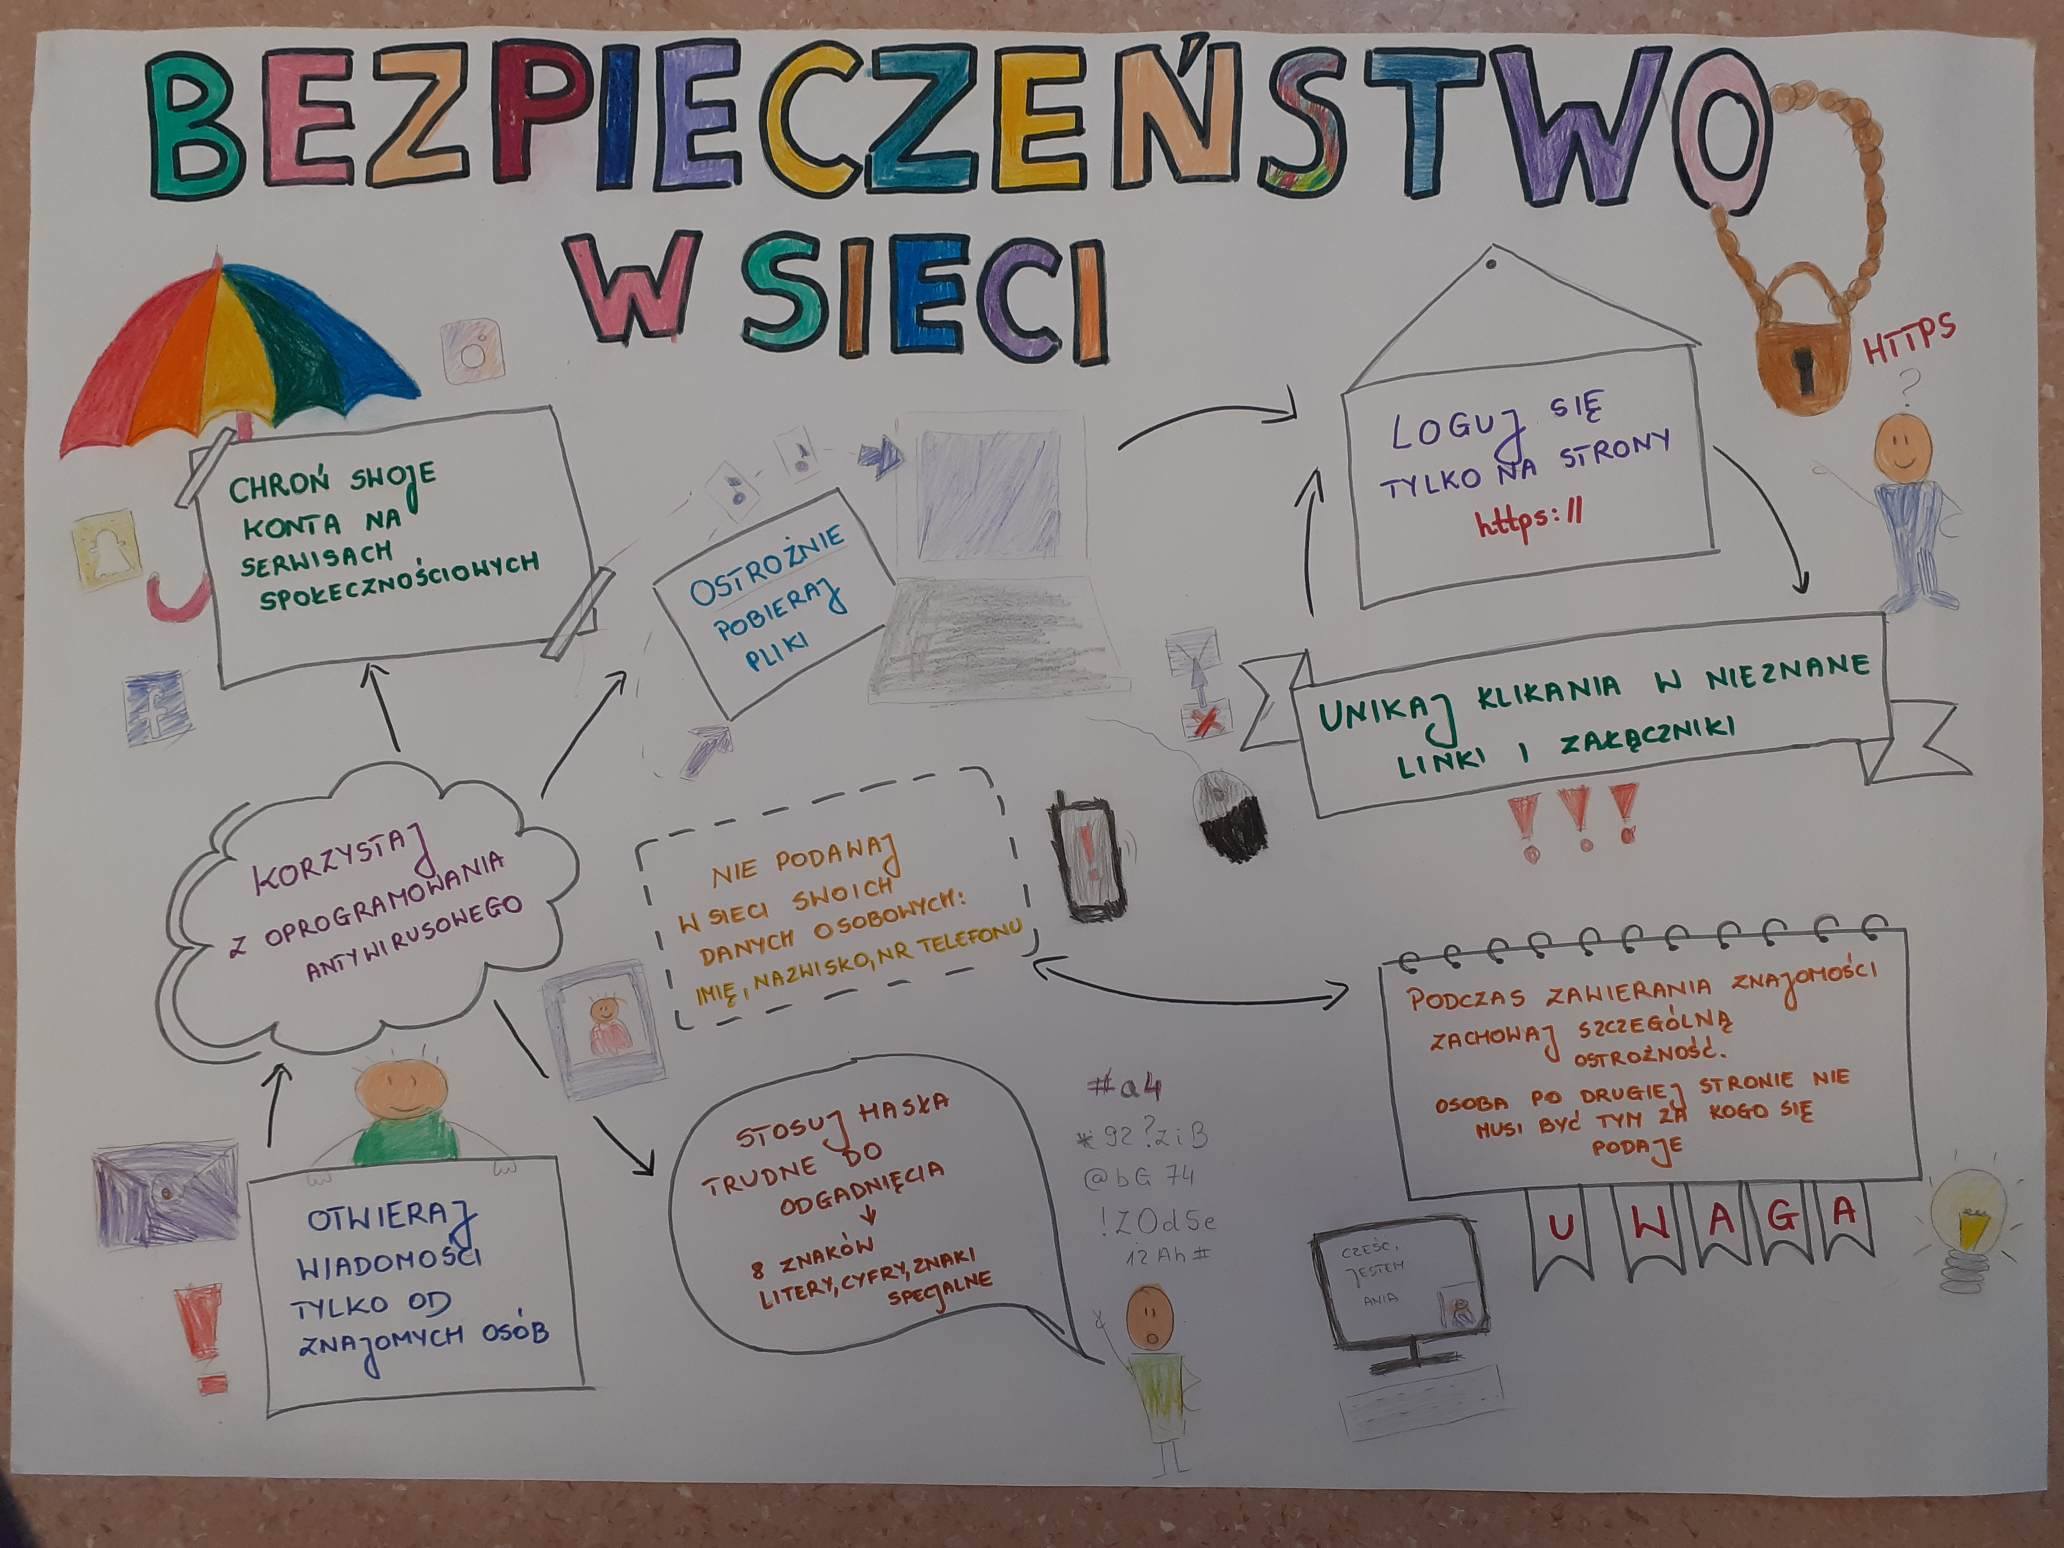 BEZPIECZEŃSTWO
W SIECI
HTTPS
?
CHROŃ SWOJE
KONTA NA
SERWISACH
SPOŁECZNOŚCIOWYCH
OSTROŻNIE
POBIERAJ
PLIKI
LOGUJ SIĘ
TYLKO NA STRONY
https://
f
UNIKAJ KLIKANIA W NIEZNANE
LINKI I ZAŁĄCZNIKI
!!!
KORZYSTAJ
Z OPROGRAMOWANIA
ANTYWIRUSOWEGO
NIE PODAWAJ
W SIECI SWOICH
DANYCH OSOBOWYCH:
IMIĘ, NAZWISKO, NR TELEFONU
!
PODCZAS ZAWIERANIA ZNAJOMOŚCI
ZACHOWAJ SZCZEGÓLNĄ
OSTROŻNOŚĆ.
OSOBA PO DRUGIEJ STRONIE NIE
MUSI BYĆ TYM ZA KOGO SIĘ
PODAJE
UWAGA
OTWIERAJ
WIADOMOŚCI
TYLKO OD
ZNAJOMYCH OSÓB
!
STOSUJ HASŁA
TRUDNE DO
ODGADNIĘCIA
8 ZNAKÓW
LITERY, CYFRY, ZNAKI
SPECJALNE
#a4
*92?ziB
@bG74
!ZOdSe
12Ah#
CZEŚĆ,
JESTEM
ANIA